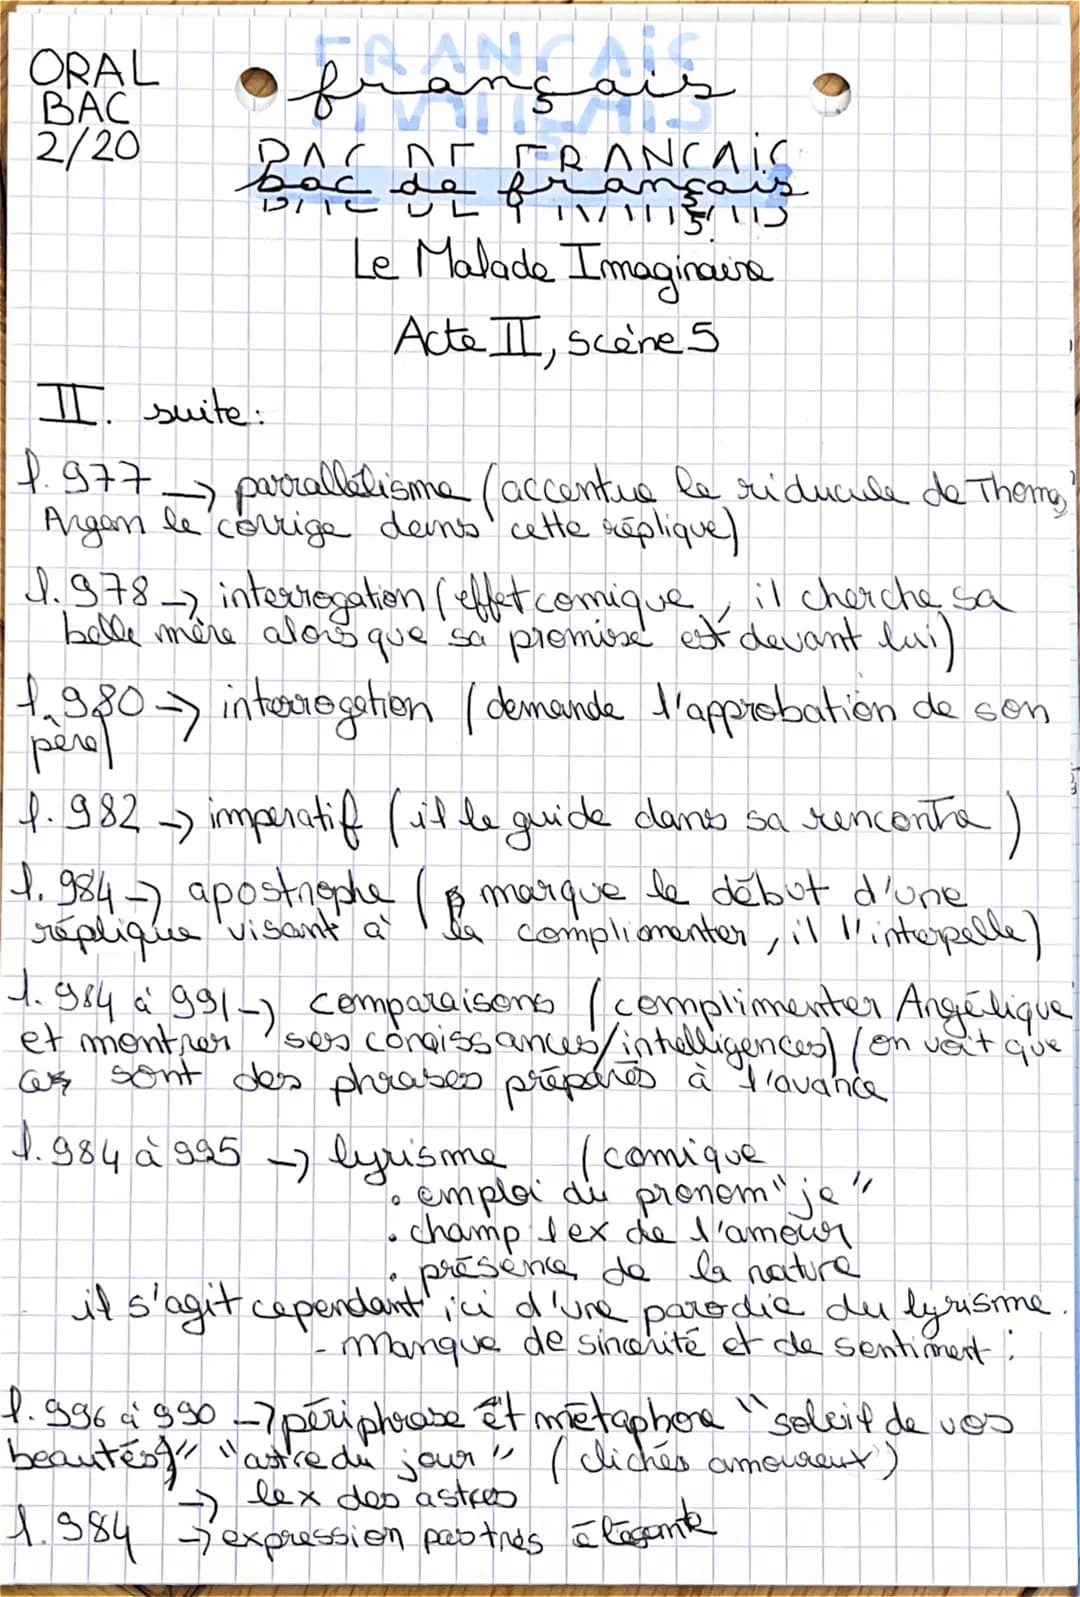 ORAL
BAC
2/20
FRANÇAIS
français
BAC DE FRANÇAIS
bac de français
Le Malade Imaginaire
Acte II, scène 5
II. suite :
l. 977 → parrallélisme (accentue le riducule de Thomas
Argan le corrige dans cette réplique)
l. 978 → interrogation (effet comique, il cherche sa
belle mère alors que sa promise est devant lui)
l. 980 → interrogation (demande l'approbation de son
père)
l. 982 → imperatif (il le guide dans sa rencontre)
l. 984 → apostrophe (marque le début d'une
réplique visant à la complimenter, il l'interpelle)
l. 984 à 991 → comparaisons (complimenter Angélique
et montrer ses conaissances/intelligences) (on voit que
ces sont des phrases préparés à l'avance
l. 984 à 995 → lyrisme (comique
• emploi du pronom "je"
• champ lex de l'amour
• présence de la nature
il s'agit cependant ici d'une parodie du lyrisme.
- manque de sincérité et de sentiment :
l. 996 à 990 → périphrase et métaphore "soleil de vos
beautés" "astre du jour" (clichés amoureux)
→ lex des astres
l. 984 → expression pas très élégante